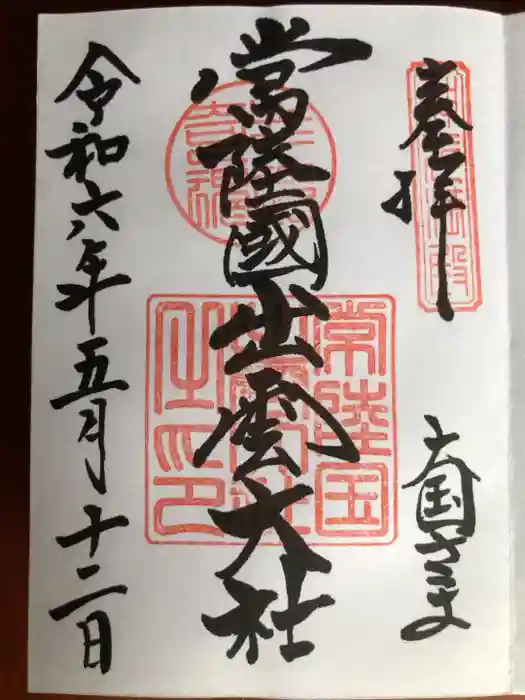 奉拝
大国さま
常陸國出雲大社
常陸国
之印
令和六年五月十二日